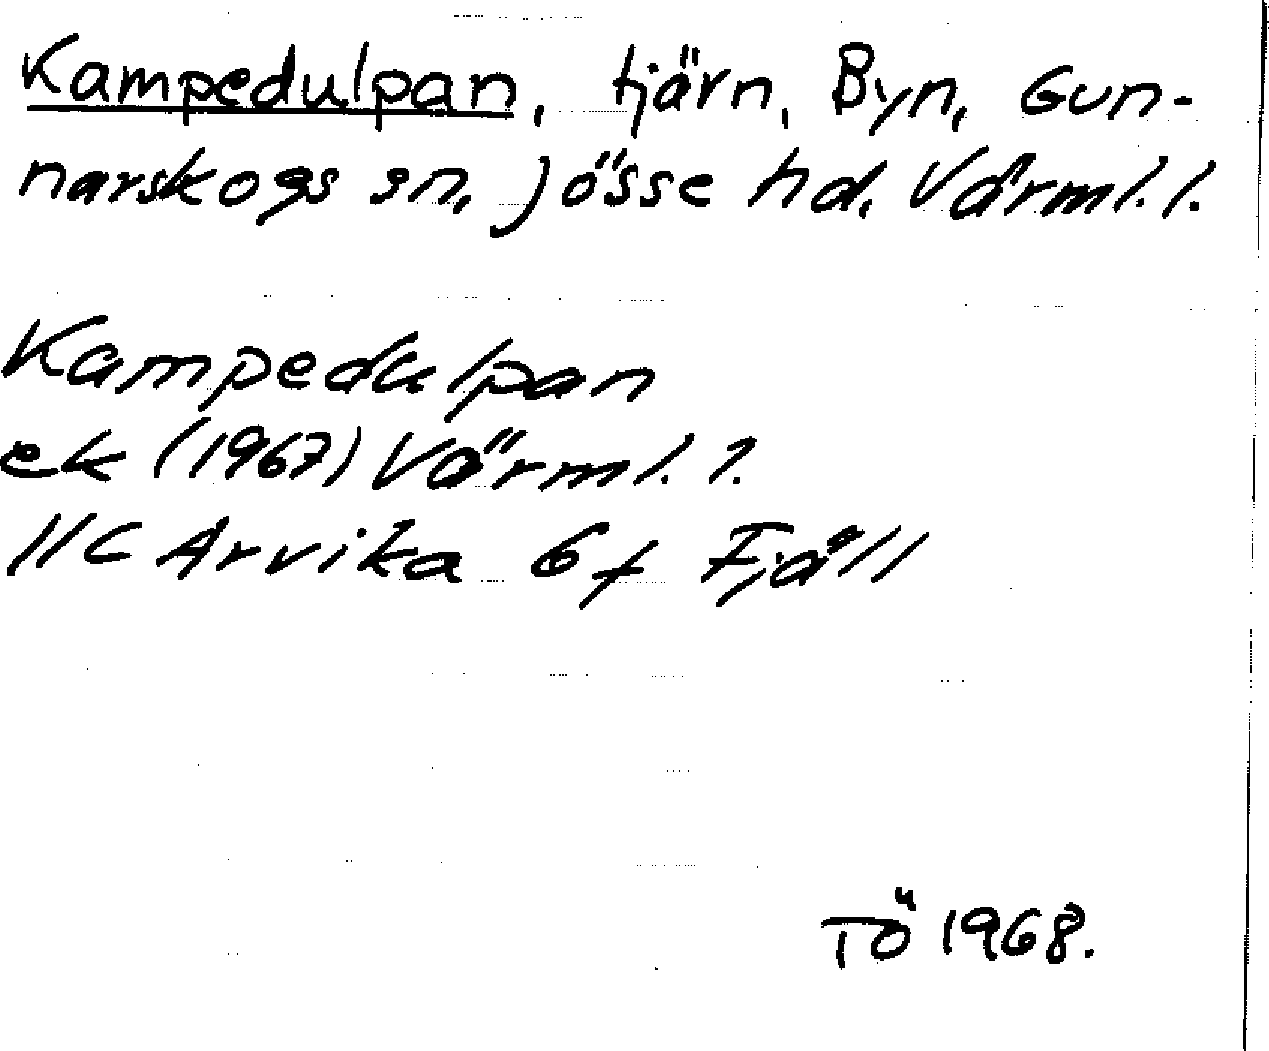 Kampedulpan, tjärn, Byn, Gun-
narskogs sn, Jösse hd, Värml. l.
Kampedulpan
ek (1967) Värml. l.
11C Arvika 6f Fjäll
TÖ 1968.